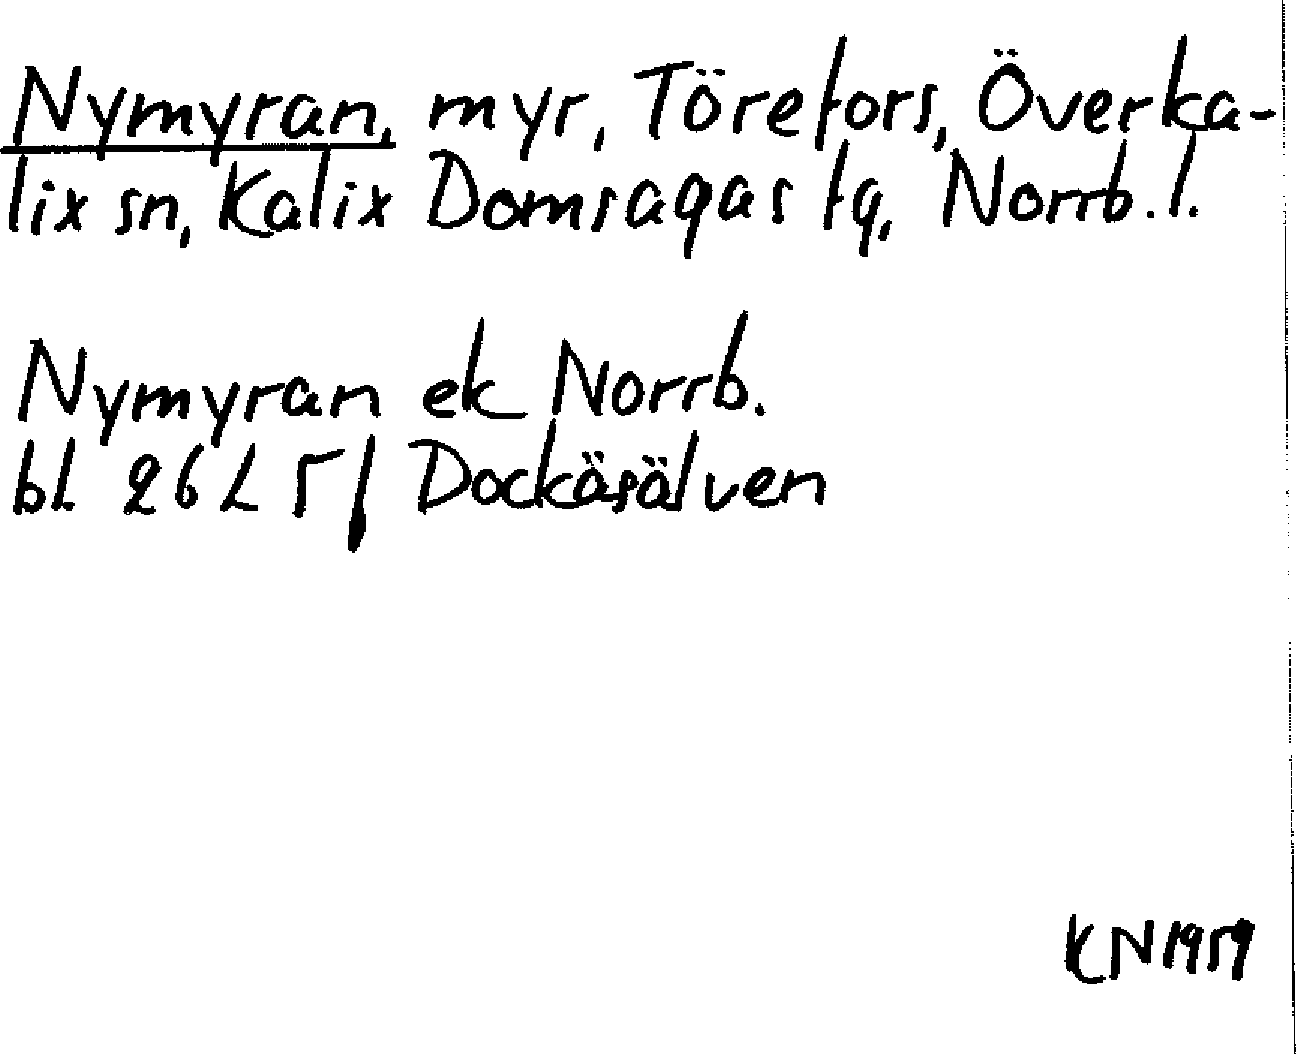 Nymyran, myr, Törefors, Överka-
lix sn, Kalix Domsagas tg, Norrb. l.
Nymyran ek Norrb.
bl. 26 L 5 f Dockäsälven
KN 1959